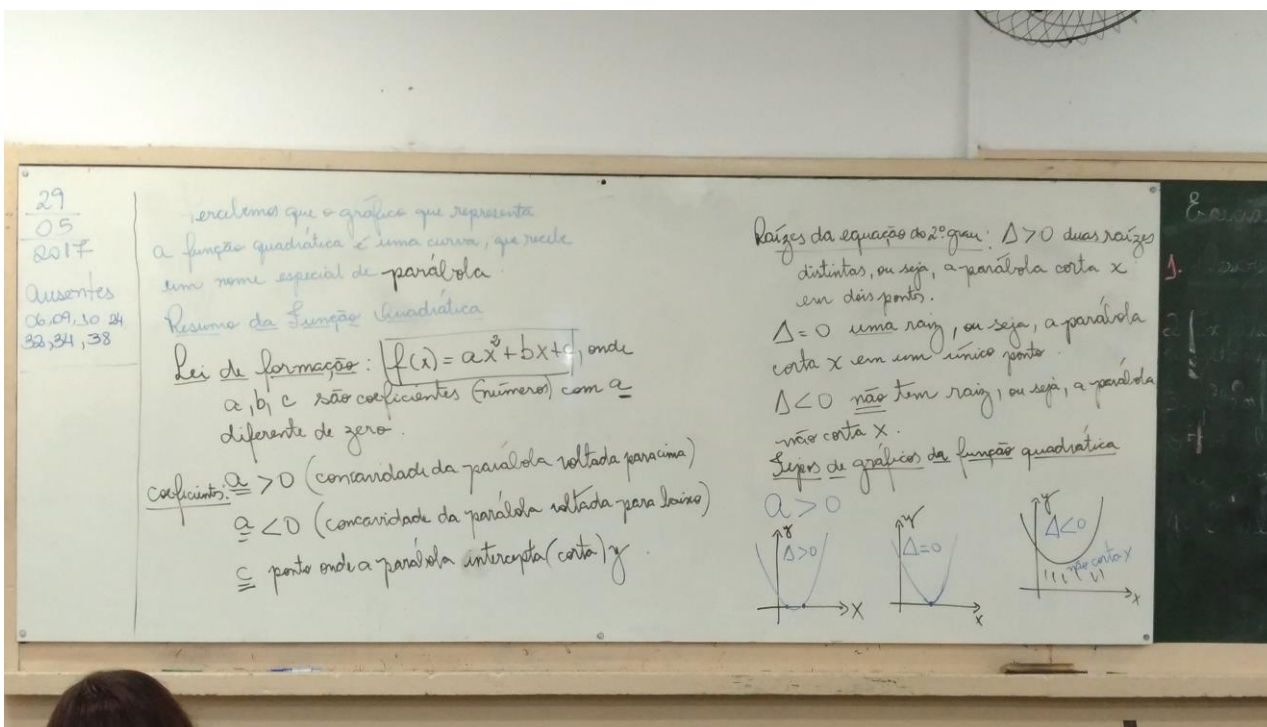 29
05
2017
Ausentes
06,09,30 24
32,34,38
ercebemos que o gráfico que representa
a função quadrática é uma curva, que recebe
um nome especial de parábola
Resumo da Função Quadrática
Lei de formação: f(x) = ax²+bx+c, onde
a, b, c são coeficientes (números) com a
diferente de zero.
coeficientes: a > 0 (concavidade da parábola voltada para cima)
a < 0 (concavidade da parábola voltada para baixo)
c ponto onde a parábola intercepta (corta) y
Raízes da equação do 2º grau: Δ>0 duas raízes
distintas, ou seja, a parábola corta x
em dois pontos.
Δ=0 uma raiz, ou seja, a parábola
corta x em um único ponto.
Δ<0 não tem raiz, ou seja, a parábola
não corta x.
Tipos de gráficos da função quadrática
a>0
y
Δ>0
x
y
Δ=0
x
y
Δ<0
não corta x
x
1.